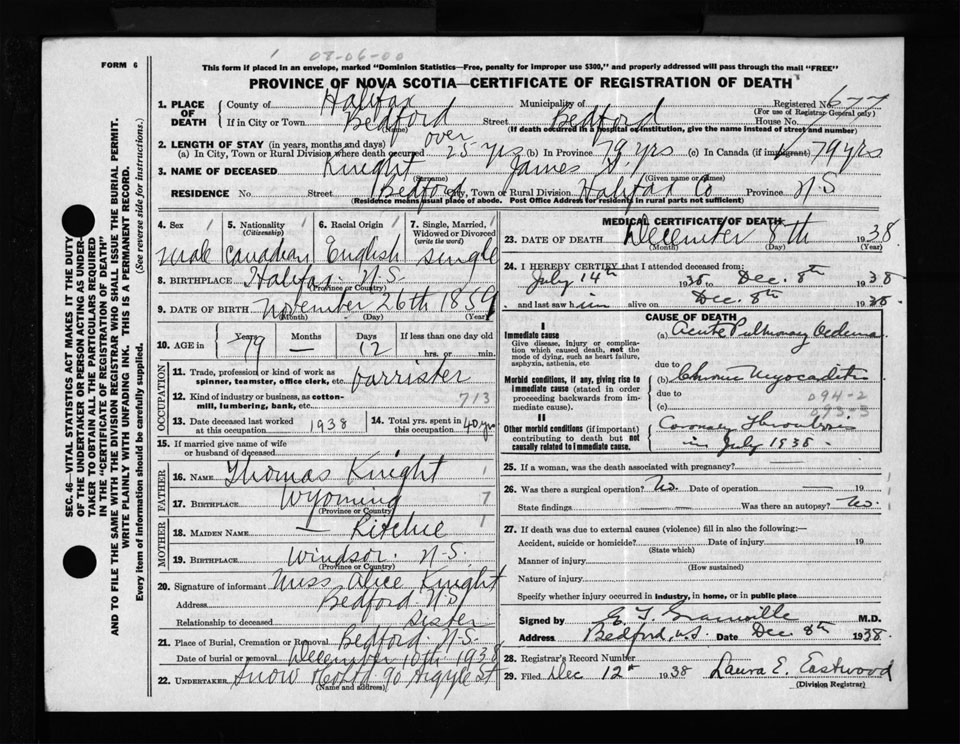 03-06-00
FORM 6
This form if placed in an envelope, marked "Dominion Statistics—Free, penalty for improper use $300," and properly addressed will pass through the mail "FREE"
PROVINCE OF NOVA SCOTIA—CERTIFICATE OF REGISTRATION OF DEATH
1. PLACE OF DEATH County of Halifax Municipality of Registered No. 677
(For use of Registrar General only)
If in City or Town Bedford (Name) Street Bedford House No.
(If death occurred in a hospital or institution, give the name instead of street and number)
2. LENGTH OF STAY (in years, months and days)
(a) In City, Town or Rural Division where death occurred over 25 yrs (b) In Province 79 yrs (c) In Canada (if immigrant) 79 yrs
3. NAME OF DECEASED Knight James
(Surname) (Given name or names)
RESIDENCE No. Street Bedford City, Town or Rural Division Halifax Co Province N-S
(Residence means usual place of abode. Post Office Address for residents in rural parts not sufficient)
4. Sex male
5. Nationality (Citizenship) Canadian
6. Racial Origin English
7. Single, Married, Widowed or Divorced (write the word) single
8. BIRTHPLACE Halifax. N.S.
(Province or Country)
9. DATE OF BIRTH November 26th 1859
(Month) (Day) (Year)
10. AGE in Years 79 Months — Days 12 If less than one day old hrs. or min.
OCCUPATION
11. Trade, profession or kind of work as spinner, teamster, office clerk, etc. barrister
12. Kind of industry or business, as cotton-mill, lumbering, bank, etc. 713
13. Date deceased last worked at this occupation 1938
14. Total yrs. spent in this occupation 40 yrs
15. If married give name of wife or husband of deceased
FATHER
16. NAME Thomas Knight
17. BIRTHPLACE Wyoming 7
(Province or Country)
MOTHER
18. MAIDEN NAME — Ritchie
19. BIRTHPLACE Windsor. N-S.
(Province or Country)
20. Signature of informant Miss Alice Knight
Address Bedford N.S.
Relationship to deceased sister
21. Place of Burial, Cremation or Removal Bedford N.S.
Date of burial or removal December 10th 1938
22. UNDERTAKER Snow 90 Argyle St
(Name and address)
MEDICAL CERTIFICATE OF DEATH
23. DATE OF DEATH December 8th 1938
(Month) (Day) (Year)
24. I HEREBY CERTIFY that I attended deceased from:
July 14th 1938 to Dec. 8th 1938
and last saw him alive on Dec. 8th 1938.
CAUSE OF DEATH
I
Immediate cause
Give disease, injury or complication which caused death, not the mode of dying, such as heart failure, asphyxia, asthenia, etc.
(a) Acute Pulmonary Oedema
due to
Morbid conditions, if any, giving rise to immediate cause (stated in order proceeding backwards from immediate cause).
(b) Chronic Myocarditis
due to 094-2
(c) 093-3
II
Other morbid conditions (if important) contributing to death but not causally related to immediate cause.
Coronary Thrombosis
in July 1938.
25. If a woman, was the death associated with pregnancy?
26. Was there a surgical operation? No. Date of operation — 19
State findings Was there an autopsy? No.
27. If death was due to external causes (violence) fill in also the following:—
Accident, suicide or homicide? Date of injury 19
(State which)
Manner of injury
(How sustained)
Nature of injury
Specify whether injury occurred in industry, in home, or in public place
Signed by M.D.
Address Bedford, N.S. Date Dec. 8th 1938.
28. Registrar's Record Number
29. Filed Dec 12th 1938 Laura E. Eastwood
(Division Registrar)
SEC. 46—VITAL STATISTICS ACT MAKES IT THE DUTY
OF THE UNDERTAKER OR PERSON ACTING AS UNDER-
TAKER TO OBTAIN ALL THE PARTICULARS REQUIRED
IN THE "CERTIFICATE OF REGISTRATION OF DEATH"
AND TO FILE THE SAME WITH THE DIVISION REGISTRAR WHO SHALL ISSUE THE BURIAL PERMIT.
WRITE PLAINLY WITH UNFADING INK. THIS IS A PERMANENT RECORD.
Every item of information should be carefully supplied. (See reverse side for instructions.)